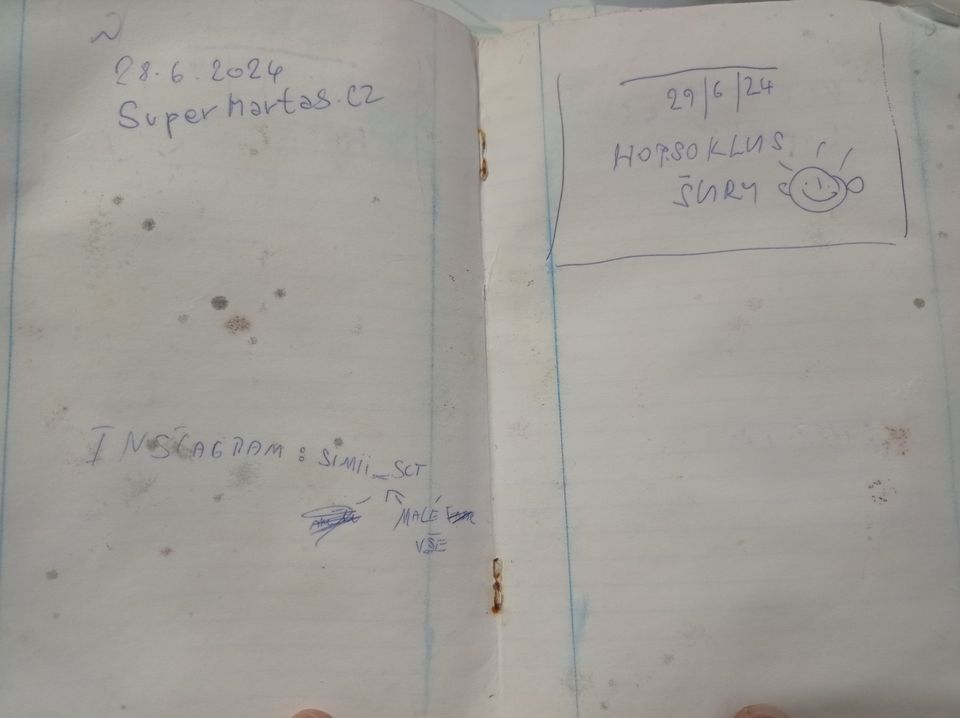 28.6.2024
SuperMartas.CZ
INSTAGRAM: SIMII_SCT
MALÉ
VŠE
29/6/24
HOPSOKLUS
ŠURY